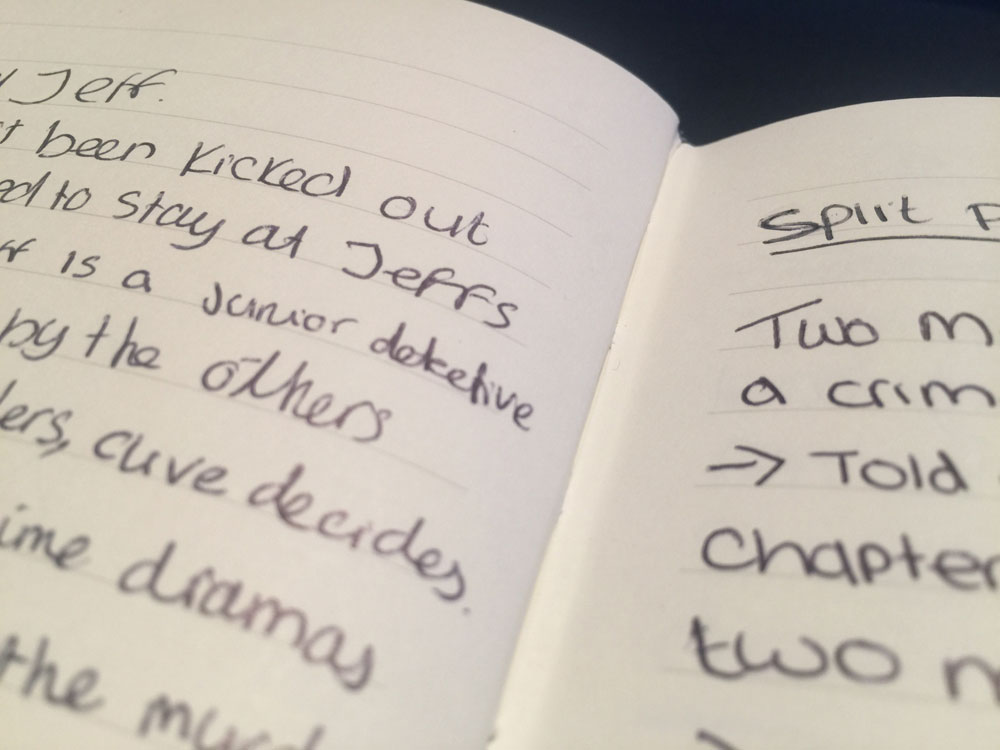 Jeff.
been kicked out
to stay at Jeffs
is a Junior detective
by the others
clive decides.
dramas
the
Split
Two m
a crim
-> Told
Chapter
two